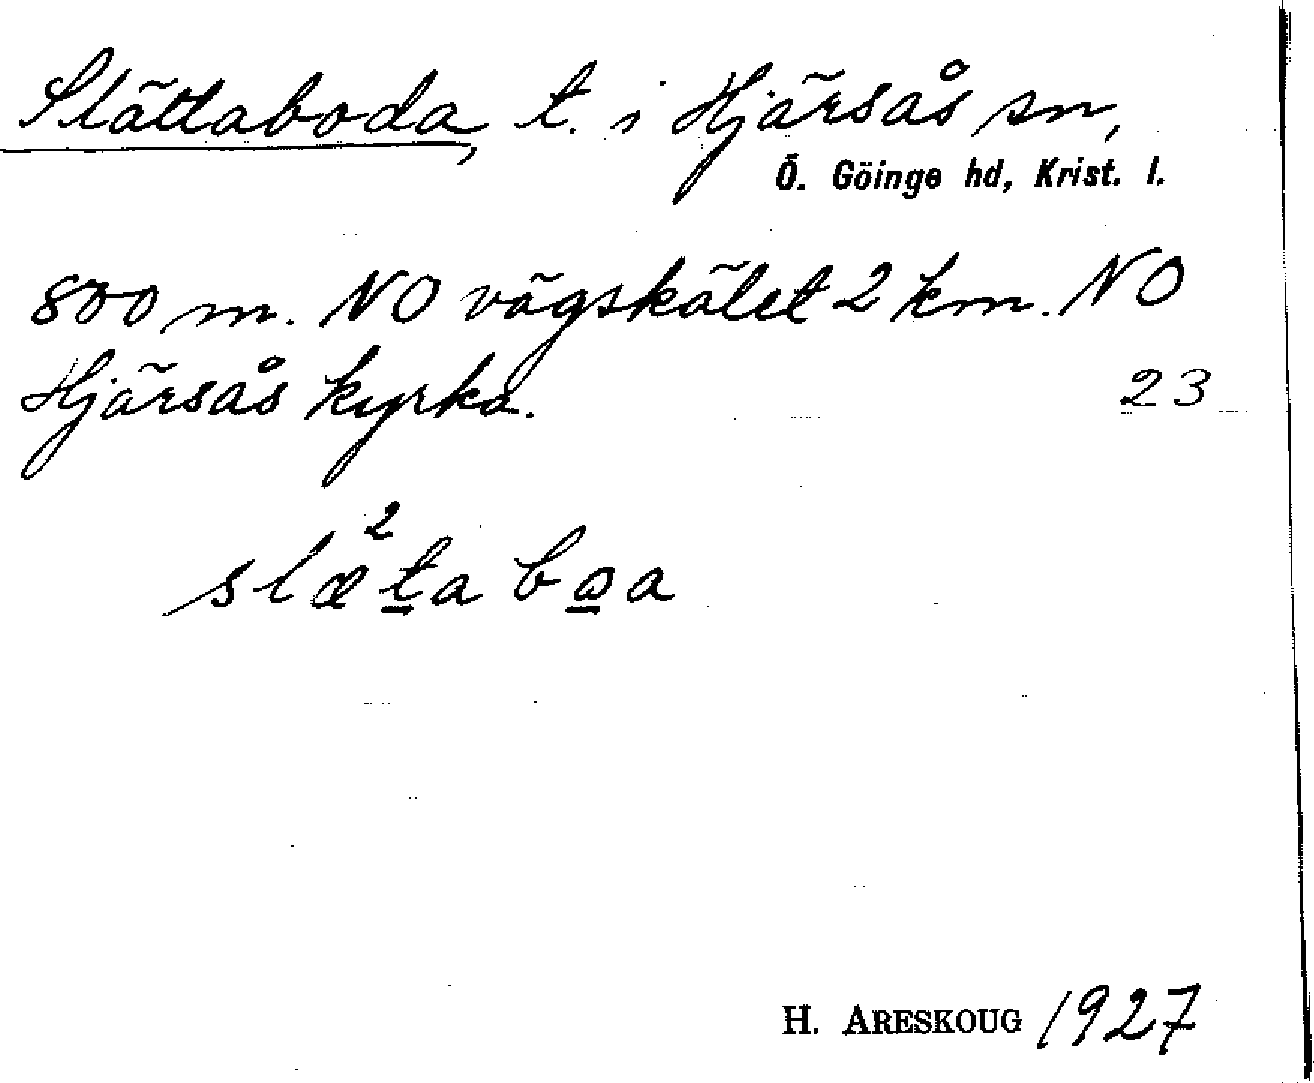 Slättaboda, t. i Hjärsås sn,
Ö. Göinge hd, Krist. l.
800 m. NO vägskälet 2 km. NO
Hjärsås kyrka.
23
2
slæṯa bo̱a
H. ARESKOUG 1927